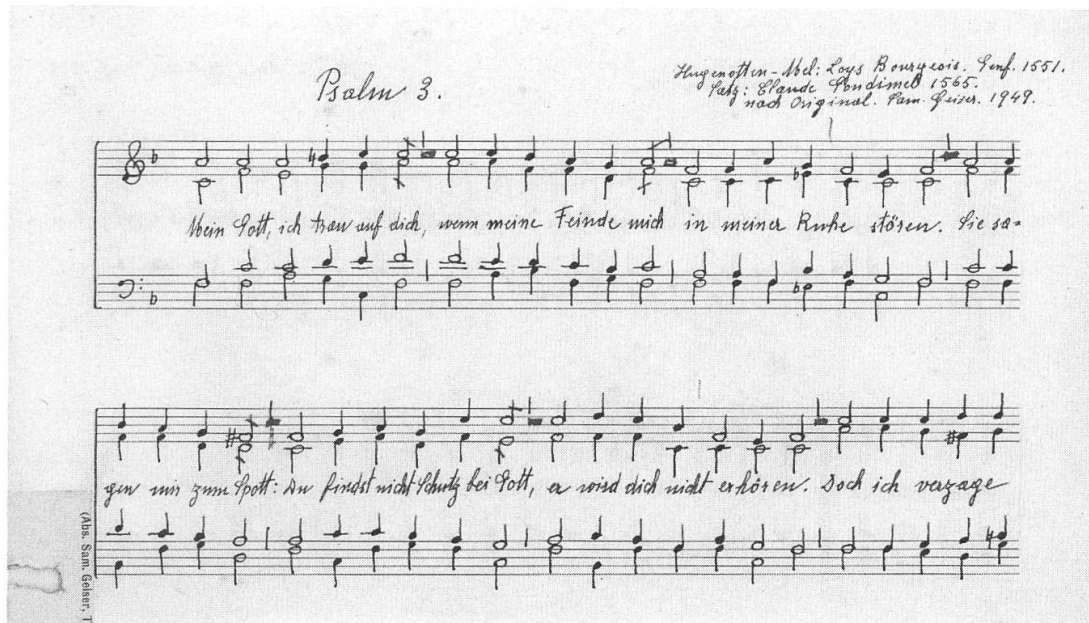 Psalm 3.
Hugenotten-Mel: Loys Bourgeois. Genf. 1551.
Satz: Claude Goudimel 1565.
nach Original. Sam. Geiser. 1949.
Mein Gott, ich trau auf dich, wenn meine Feinde mich in meiner Ruhe stören. Sie sa-
gen mir zum Spott: Du findst nicht Schutz bei Gott, er wird dich nicht erhören. Doch ich verzage
(Abs. Sam. Geiser, T